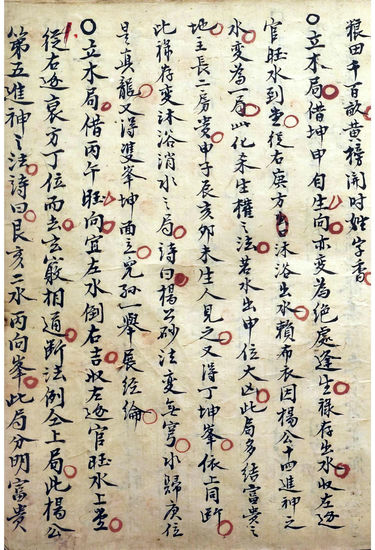 粮田千百畝黄榜開时姓字香
立木局借坤申自生向亦变為絶處逢生禄存出水收左边
官旺水到堂従右庚方沐浴出水賴布衣因楊公十四進神之
水变為一局此化杀生權之法若水出申位大凶此局多结富貴之
地主長二房发甲子辰亥卯未生人見之又得丁坤峯依上同断
此禄存变沐浴消水之局詩曰楊公砂法变無穹水歸庚位
是真龍又得雙峯坤酉立児孫一舉展经綸
立木局借丙午旺向宜左水倒右吉收左边官旺水上堂
従右边衰方丁位而去玄竅相通断法例仝上局此楊公
第五進神之法詩曰艮亥二水丙向峯此局分明富貴